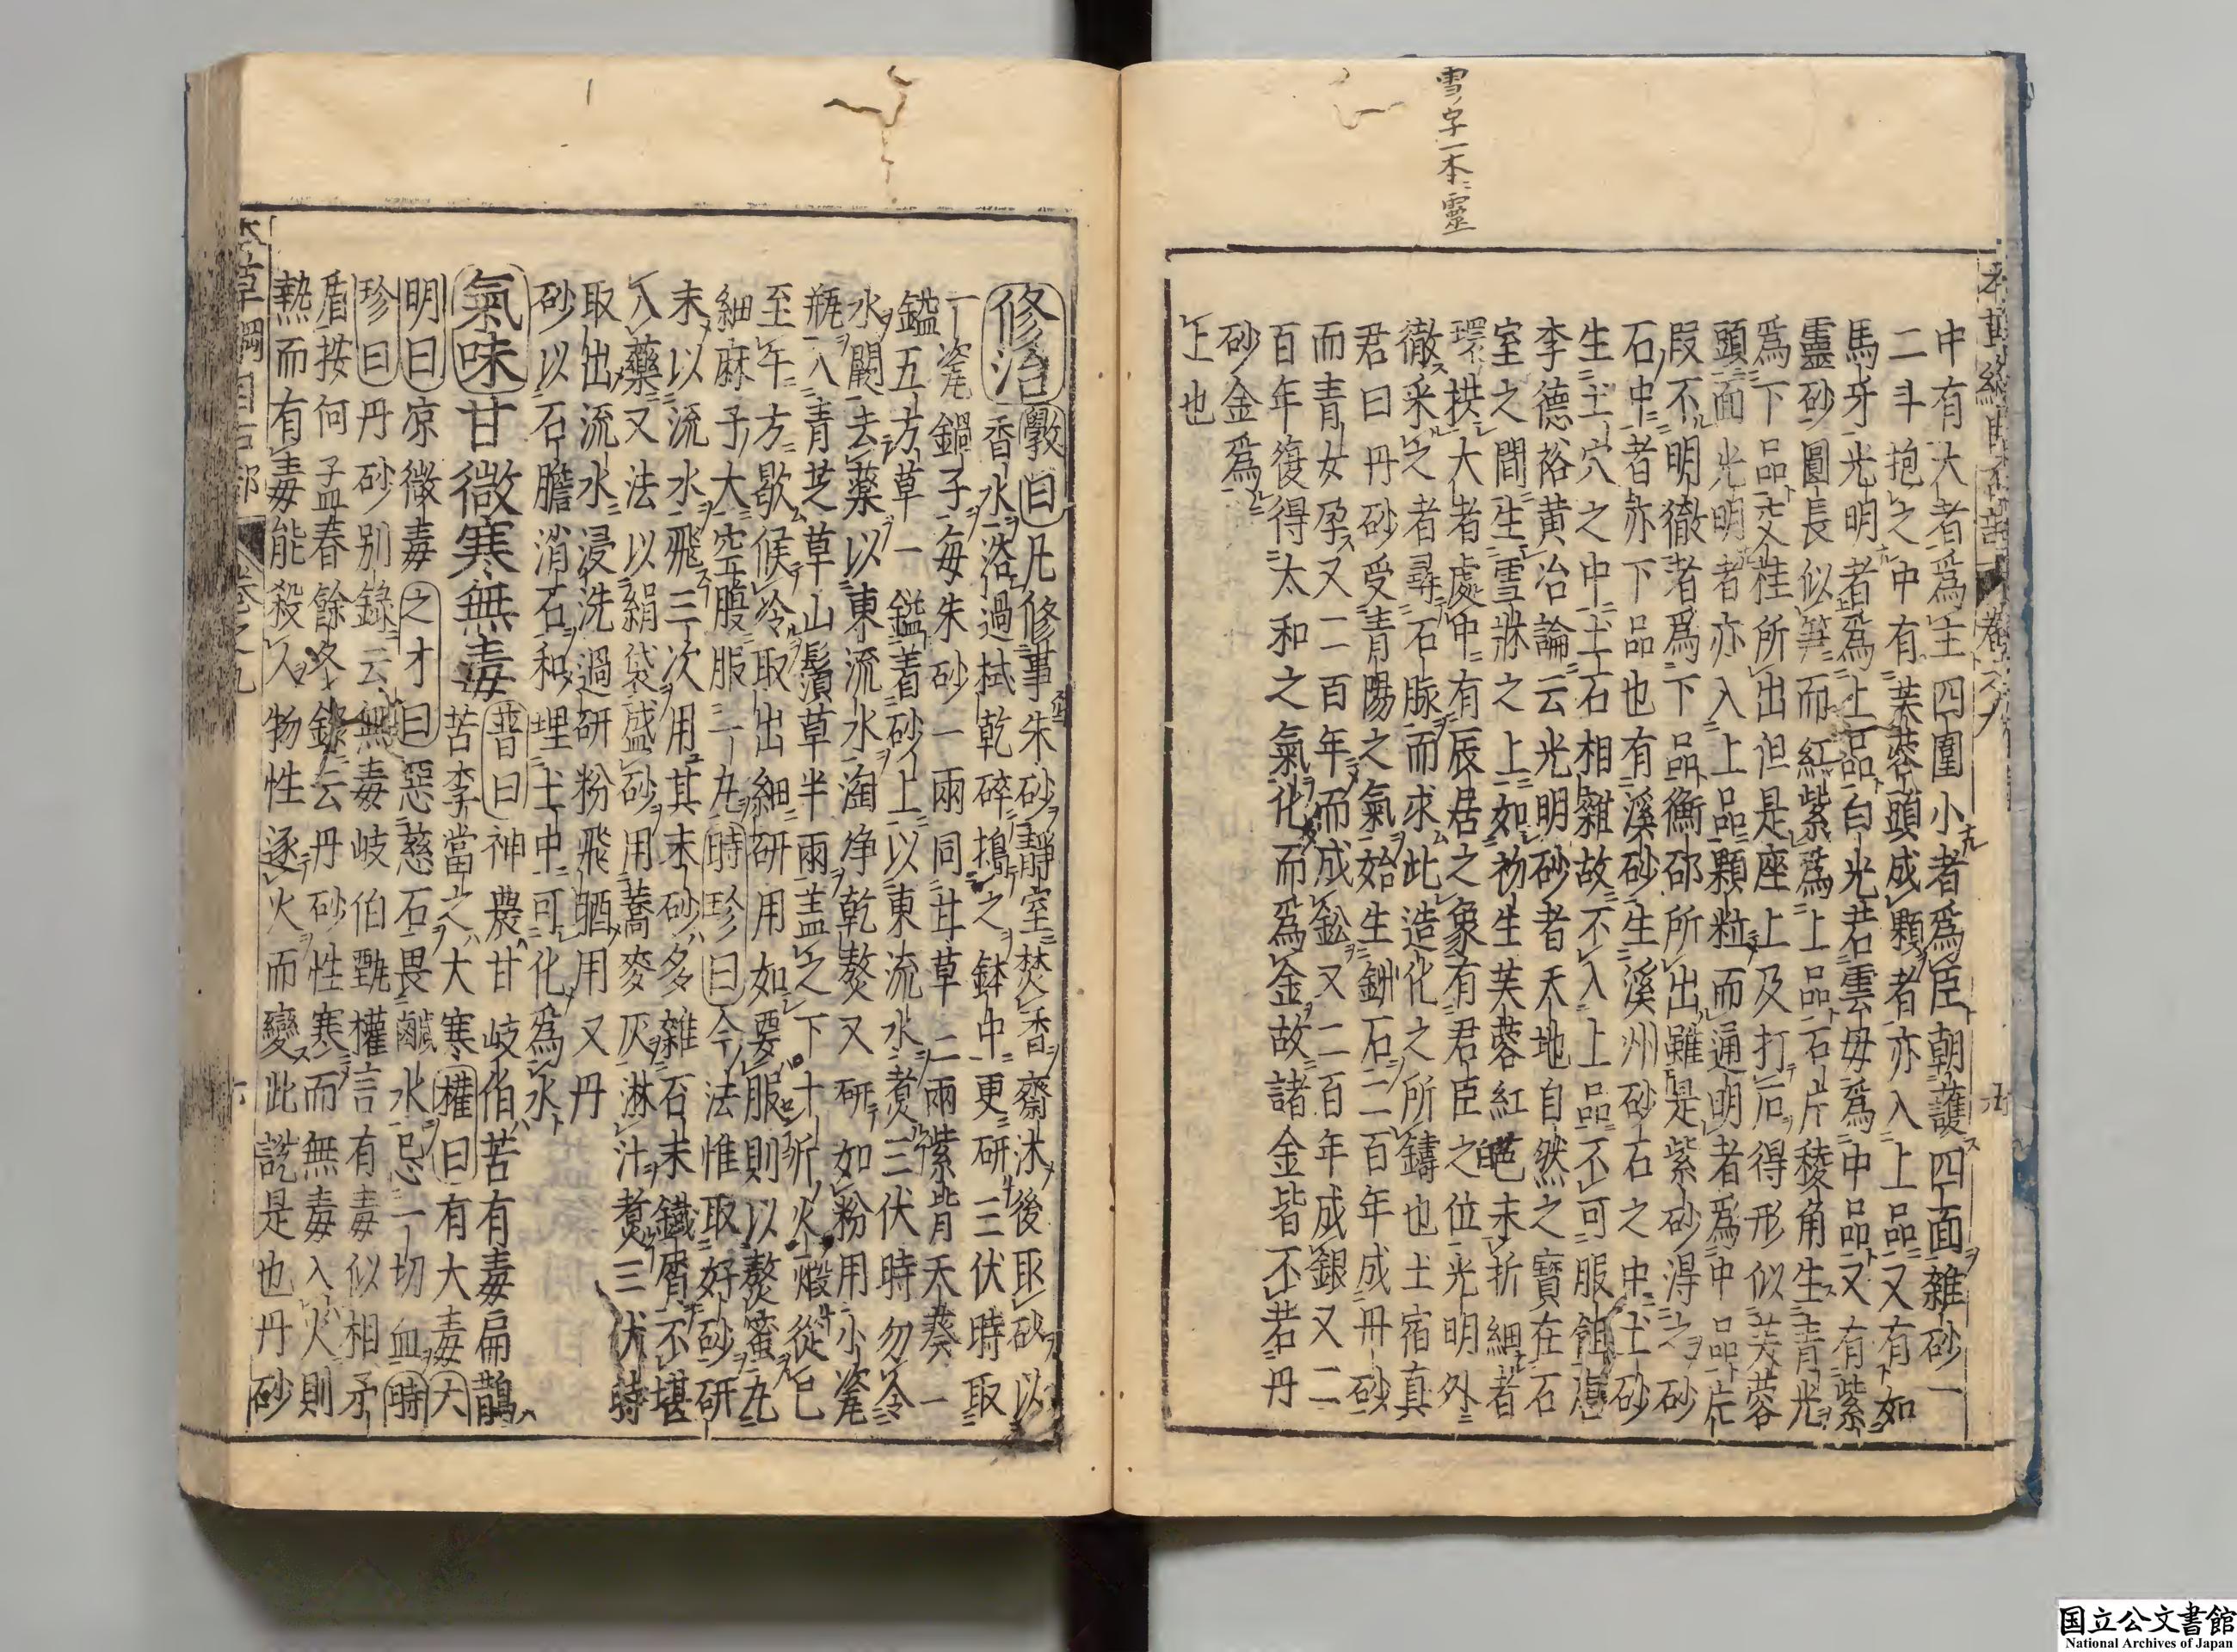 雪ノ字一本ニ靈
中有大者爲主四圍小者爲臣朝護四面雜砂一
二斗抱之中有芙蓉頭成顆者亦入上品又有如
馬牙光明者爲上品白光若雲母爲中品又有紫
靈砂圓長似笋而紅紫爲上品石片稜角生青光
爲下品交桂所出但是座上及打石得形似芙蓉
頭面光明者亦入上品顆粒而通明者爲中品片
段不明徹者爲下品衡邵所出雖是紫砂得之砂
石中者亦下品也有溪砂生溪州砂石之中土砂
生土穴之中土石相雜故不入上品不可服餌
李德裕黄冶論云光明砂者天地自然之寶在石
室之間生雪牀之上如初生芙蓉紅芭未折細者
環拱大者處中有辰居之象有君臣之位光明外
徹采之者尋石脉而求此造化之所鑄也土宿真
君曰丹砂受青陽之氣始生鉚石二百年成丹砂
而青女孕又二百年而成鉛又二百年成銀又二
百年復得太和之氣化而爲金故諸金皆不若丹
砂金爲
上也
修治 斅曰凡修事朱砂靜室焚香齋沐後取砂以
香水浴過拭乾碎搗之鉢中更研三伏時取
一瓷鍋子每朱砂一兩同甘草二兩紫背天葵一
鎰五方草一鎰着砂上以東流水煮三伏時勿令
水闕去藥以東流水淘净乾熬又研如粉用小瓷
瓶入青芝草山鬚草半兩盖之下十斤火煅從巳
至午方歇候冷取出細研用如要服則以熬蜜丸
細麻子大空腹服一丸 時珍曰今法惟取好砂研
末以流水飛三次用其末砂多雜石末鐵屑不堪
入藥又法以絹袋盛砂用蕎麥灰淋汁煮三伏時
取出流水浸洗過研粉飛晒用又丹
砂以石膽消石和埋土中可化爲水
氣味 甘微寒無毒 普曰神農甘岐伯苦有毒扁鵲
苦李當之大寒 權曰有大毒 大
明曰凉微毒 之才曰惡慈石畏鹹水忌一切血 時
珍曰丹砂别錄云無毒岐伯甄權言有毒似相矛
盾按何孟春餘冬錄云丹砂性寒而無毒入火則
熱而有毒能殺人物性逐火而變此説是也丹砂
国立公文書館
National Archives of Japan